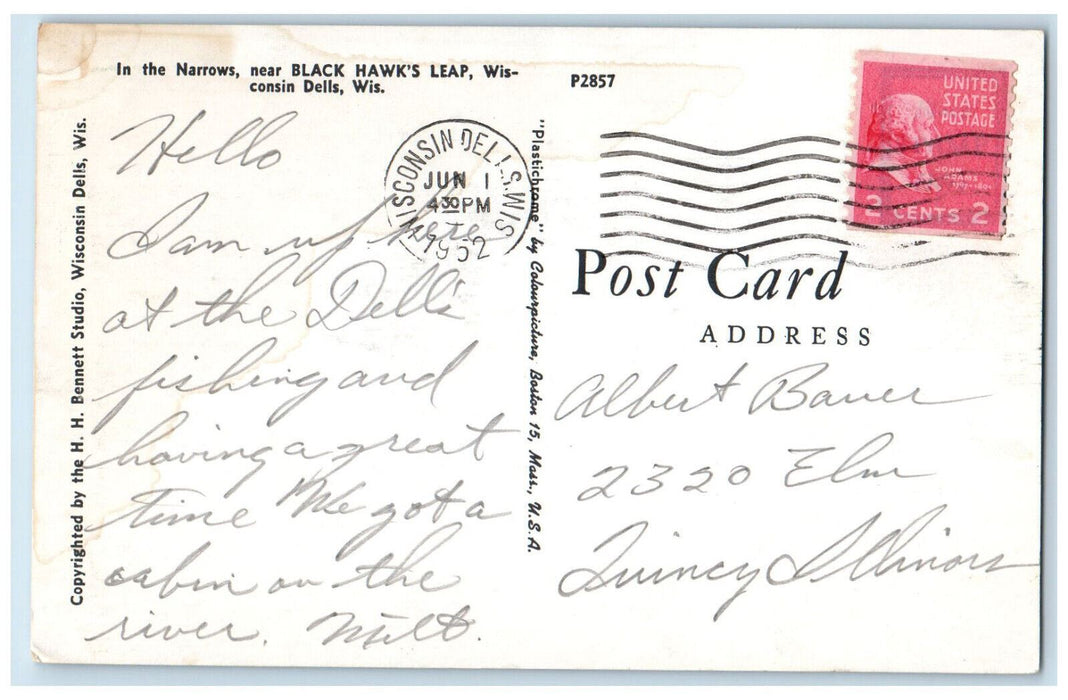 In the Narrows, near BLACK HAWK'S LEAP, Wis-
consin Dells, Wis.
P2857
Copyrighted by the H. H. Bennett Studio, Wisconsin Dells, Wis.
Hello
I am up here
at the Dells
fishing and
having a great
time We got a
cabin on the
river. Milt.
WISCONSIN DELLS, WIS.
JUN 1
4 30 PM
1952
"Plastichrome" by Colourpicture, Boston 15, Mass., U.S.A.
UNITED
STATES
POSTAGE
JOHN
ADAMS
1797-1801
2 CENTS 2
Post Card
ADDRESS
Albert Bauer
2320 Elm
Quincy Illinois